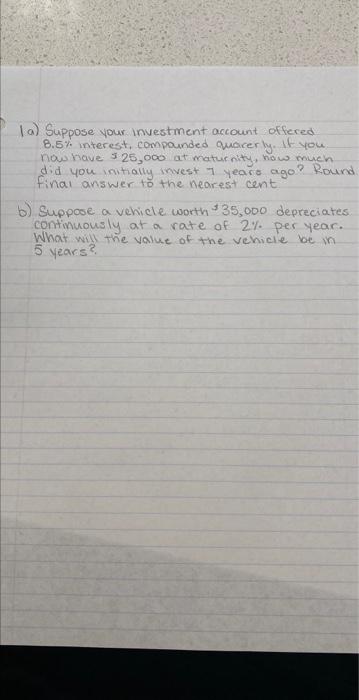 1a) Suppose your investment account offered
8.5% interest, compounded quarerly. If you
now have $25,000 at maturnity, how much
did you initially invest 7 years ago? Round
final answer to the nearest cent
b) Suppose a vehicle worth $35,000 depreciates
continuously at a rate of 2% per year.
What will the value of the vehicle be in
5 years?